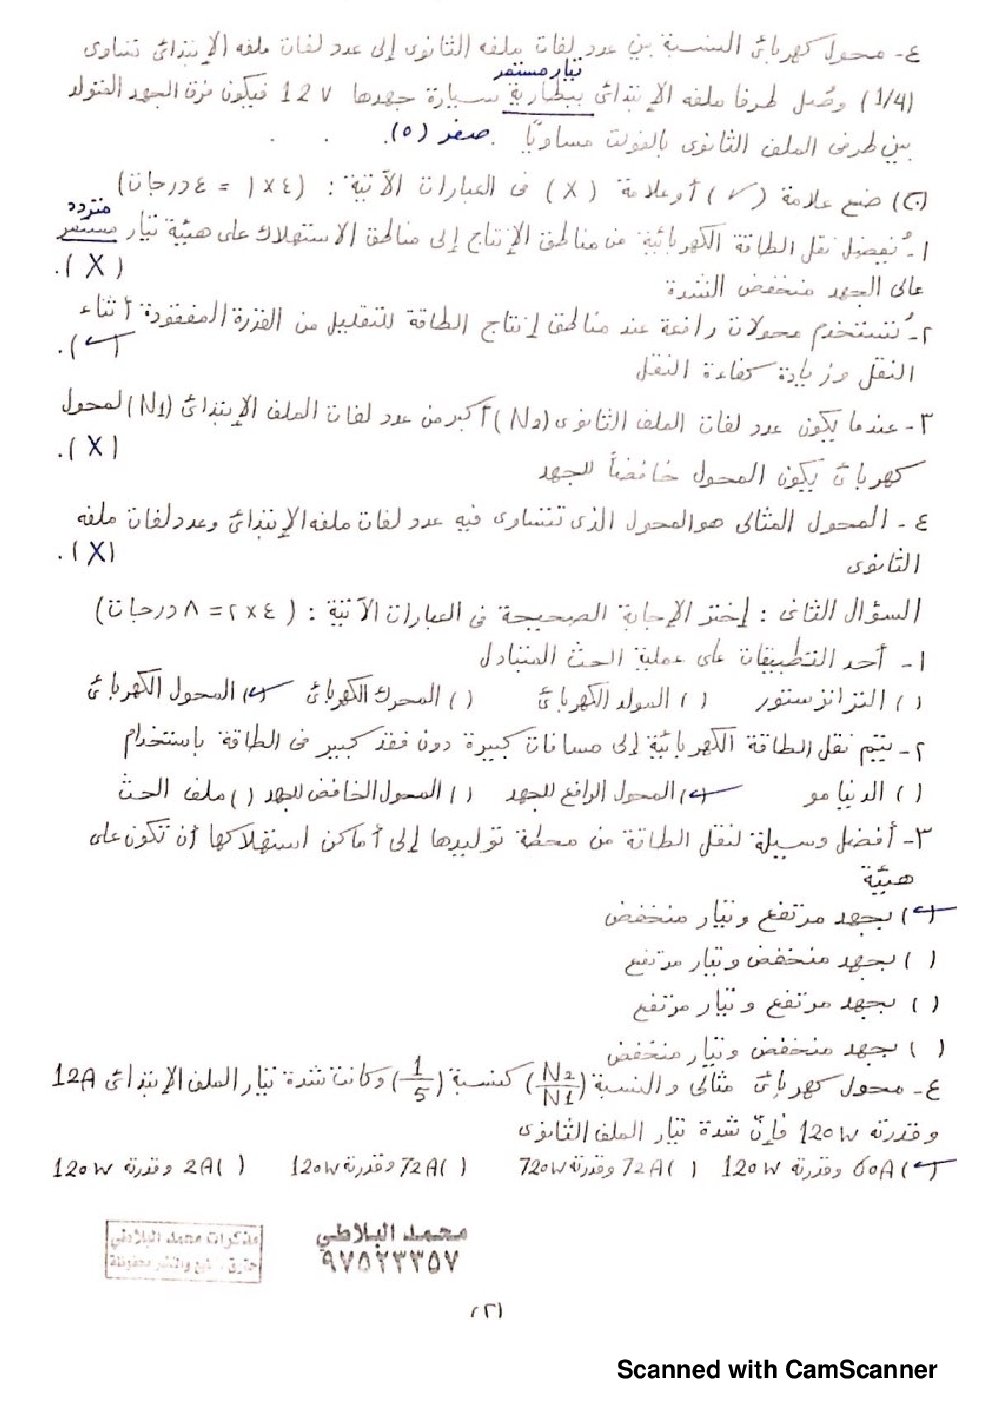 ٤- محول كهربائى النسبة بين عدد لفات ملفه الثانوى إلى عدد لفات ملفه الإبتدائى تساوى
تيار مستمر
(1/4) وصُل طرفا ملفه الإبتدائى ببطارية سيارة جهدها 12 V فيكون فرق الجهد المتولد
بين طرفى الملف الثانوى بالفولت مساويًا صفر (٥).
(ب) ضع علامة (✓) أو علامة (X) فى العبارات الآتية : (٤ × ١ = ٤ درجات)
متردد
١- يُفضل نقل الطاقة الكهربائية من مناطق الإنتاج إلى مناطق الاستهلاك على هيئة تيار مستمر
عالى الجهد منخفض الشدة (X).
٢- تُستخدم محولات رافعة عند مناطق إنتاج الطاقة للتقليل من القدرة المفقودة أثناء
النقل وزيادة كفاءة النقل (✓).
٣- عندما يكون عدد لفات الملف الثانوى (N2) أكبر من عدد لفات الملف الإبتدائى (N1) لمحول
كهربائى يكون المحول خافضاً للجهد (X).
٤- المحول المثالى هو المحول الذى تتساوى فيه عدد لفات ملفه الإبتدائى وعدد لفات ملفه
الثانوى (X).
السؤال الثانى : إختر الإجابة الصحيحة فى العبارات الآتية : (٤ × ٢ = ٨ درجات)
١- أحد التطبيقات على عملية الحث المتبادل
( ) الترانزستور ( ) المولد الكهربائى ( ) المحرك الكهربائى (✓) المحول الكهربائى
٢- يتم نقل الطاقة الكهربائية إلى مسافات كبيرة دون فقد كبير فى الطاقة باستخدام
( ) الدينامو (✓) المحول الرافع للجهد ( ) المحول الخافض للجهد ( ) ملف الحث
٣- أفضل وسيلة لنقل الطاقة من محطة توليدها إلى أماكن استهلاكها أن تكون على
هيئة
(✓) بجهد مرتفع وتيار منخفض
( ) بجهد منخفض وتيار مرتفع
( ) بجهد مرتفع وتيار مرتفع
( ) بجهد منخفض وتيار منخفض
٤- محول كهربائى مثالى والنسبة (N2/N1) كنسبة (1/5) وكانت شدة تيار الملف الإبتدائى 12A
وقدرته 120W فإنّ شدة تيار الملف الثانوى
(✓) 60A وقدرته 120W ( ) 72A وقدرته 720W ( ) 72A وقدرته 120W ( ) 2A وقدرته 120W
محمد البلاطي
٩٧٥٢٣٣٥٧
مذكرات محمد البلاطي
حقوق الطبع والنشر محفوظة
(٢)
Scanned with CamScanner